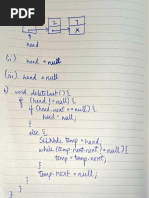 9 2 7
X
head
(ii) head = null
(iii) head = null
void deleteLast () {
if (head != null) {
if (head.next == null) {
head = null;
}
else {
temp = head;
while (temp.next.next != null) {
temp = temp.next;
}
temp.next = null;
}
}
}